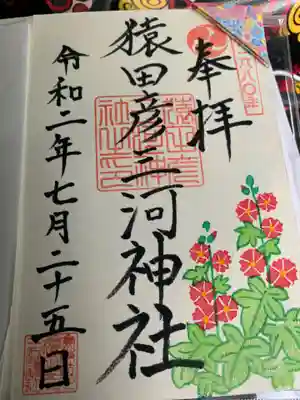 奉拝
猿田彦三河神社
令和二年七月二十五日